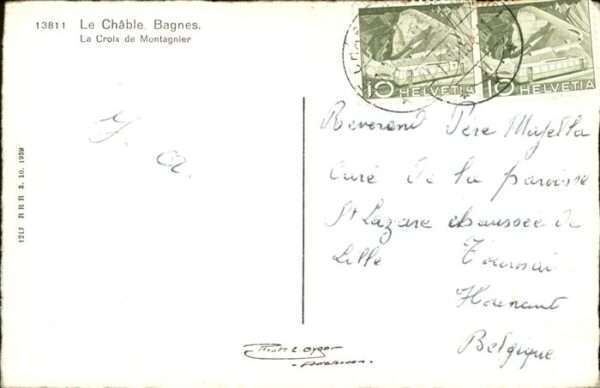 13811 Le Châble. Bagnes.
La Croix de Montagnier
10 HELVETIA 10 HELVETIA
Reverend Père Majella
Curé de la paroisse
St Lazare chaussee de
Lille Tournai
Hainaut
Belgique